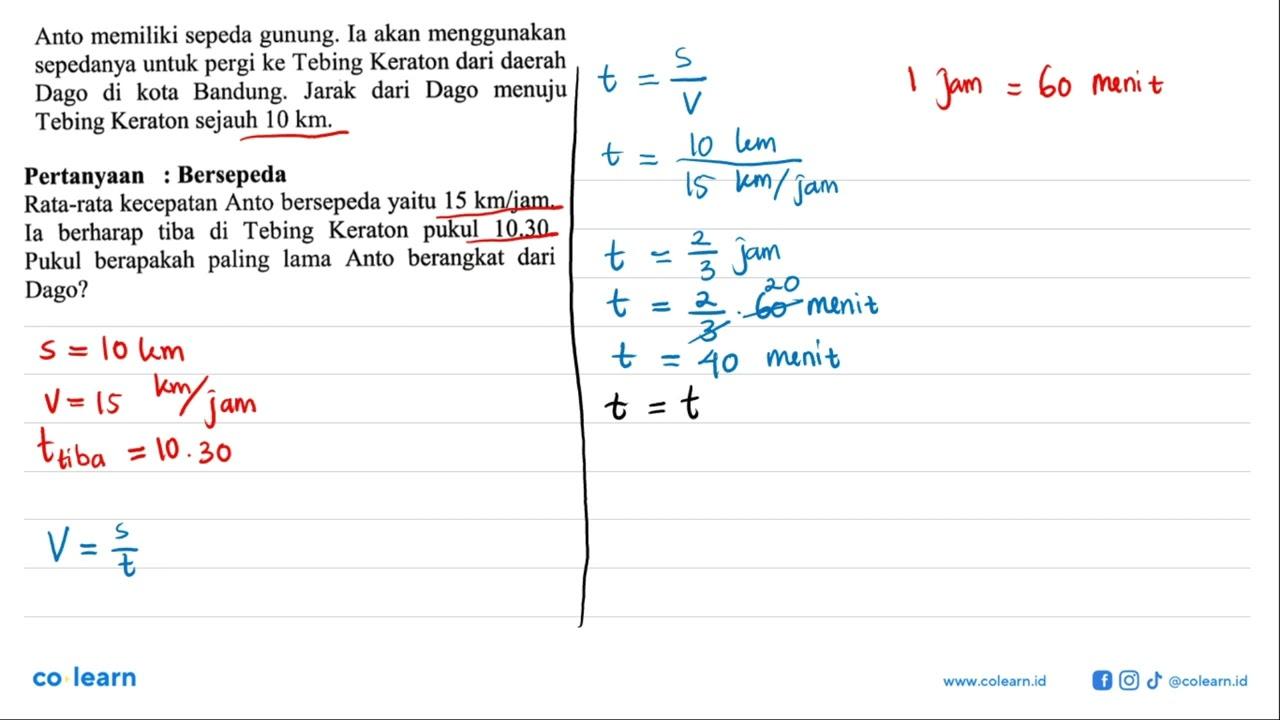 Anto memiliki sepeda gunung. Ia akan menggunakan
sepedanya untuk pergi ke Tebing Keraton dari daerah
Dago di kota Bandung. Jarak dari Dago menuju
Tebing Keraton sejauh 10 km.
Pertanyaan : Bersepeda
Rata-rata kecepatan Anto bersepeda yaitu 15 km/jam.
Ia berharap tiba di Tebing Keraton pukul 10.30.
Pukul berapakah paling lama Anto berangkat dari
Dago?
s = 10 km
v = 15 km/jam
t tiba = 10.30
V = s/t
t = s/v
t = 10 km / 15 km/jam
t = 2/3 jam
t = 2/3 . 60 menit 20
t = 40 menit
t = t
1 jam = 60 menit
co learn
www.colearn.id
@colearn.id